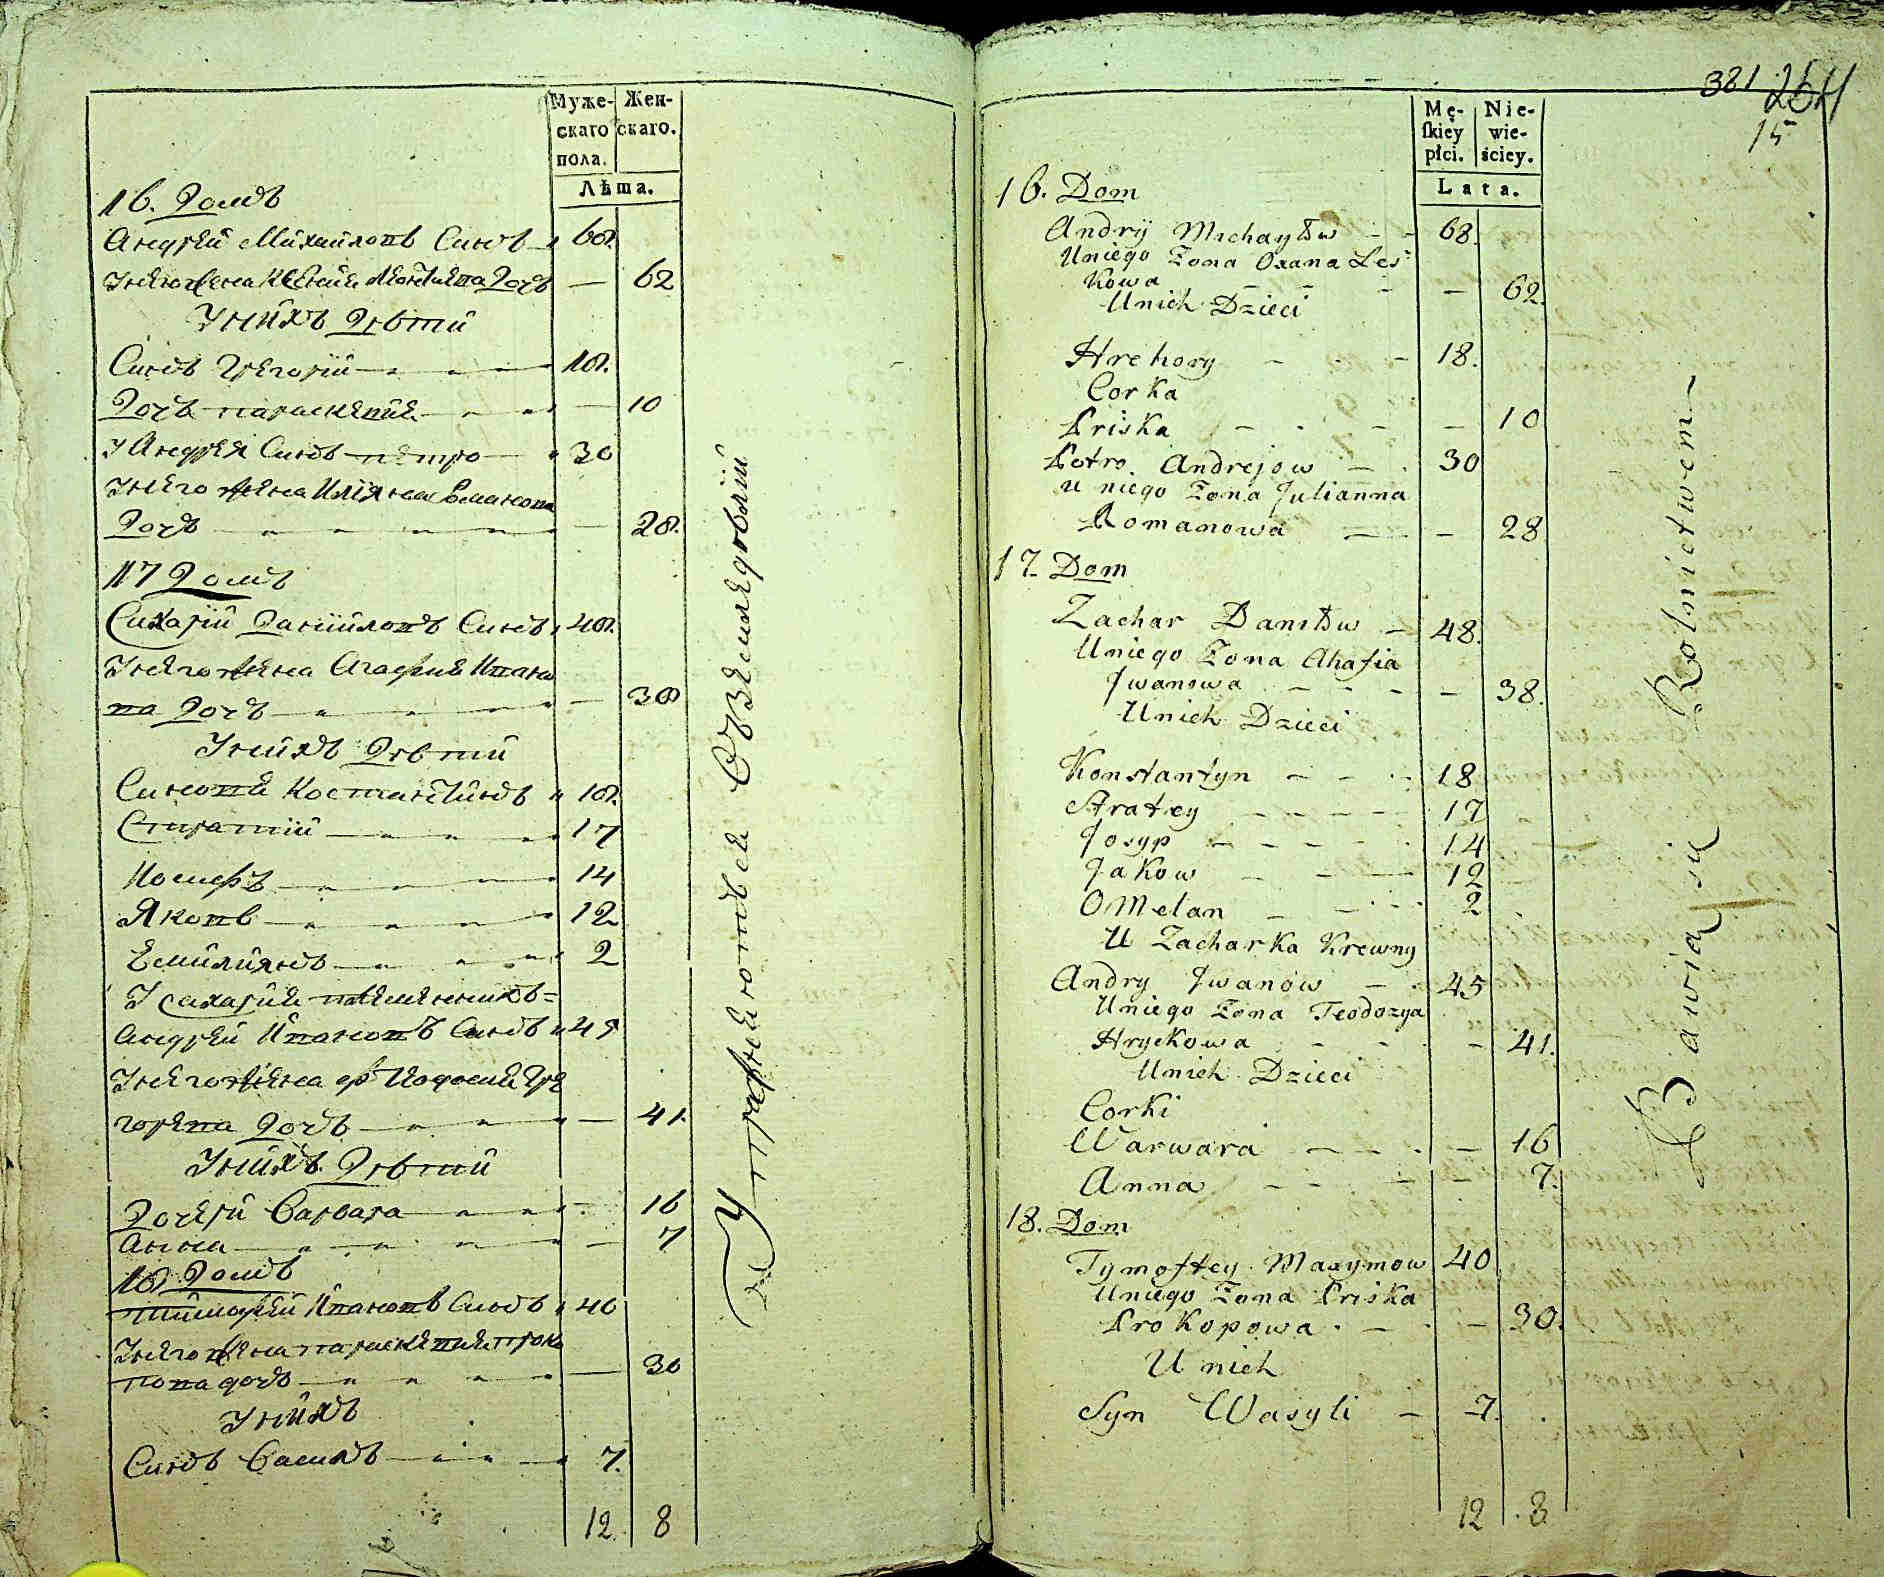 Муже- Жен-
скаго скаго.
пола.
Лѣта.
16. Домъ
Андрей Михайловъ Синъ 68.
У него жена Ксения Леонтиева Дочь — 62
У нихъ Дѣти
Синъ Григорий 18.
Дочь параскевия — 10
У Андрея Синъ петро 30
У него жена Илияна Романова
Дочь — 28.
17 Домъ
Сахарий Данииловъ Синъ 48.
У него жена Агафия Ивано
ва Дочь — 38
У нихъ Дѣти
Синови Костантинъ 18.
Стратий 17
Иосифъ 14
Яковъ 12
Емилиянъ 2
У Сахария племенникъ=
Андрей Ивановъ Синъ 45
У него жена феодосия Гри
горева Дочь — 41.
У нихъ Дѣти
Дочери Варвара — 16
Анна — 7
18 Домъ
тимофей Ивановъ Синъ 40
У него жена параскевия проко
пова дочь — 30
У нихъ
Синъ Василь 7.
12 8
Упражняются въ земледѣлии
381 264
15
Mę- Nie-
ſkiey wie-
płci. ściey.
Lata.
16. Dom
Andrij Michayłow — 68.
U niego Żona Oxana Les-
kowa — 62.
U nich Dzieci
Hrehory — 18.
Corka
Priska — 10
Petro Andrejow — 30
u niego Żona Julianna
Romanowa — 28
17. Dom
Zachar Daniłow — 48.
U niego Żona Ahafia
Jwanowa — 38.
U nich Dzieci
Konstantyn — 18
Stratey — 17
Josyp — 14
Jakow — 12
Omelan — 2
U Zacharka Krewny
Andry Jwanow — 45
U niego Żona Teodozya
Hryckowa — 41.
U nich Dzieci
Corki
Warwara — 16
Anna — 7.
18. Dom
Tymoftey Maxymow 40
U niego Żona Priska
Prokopowa — 30.
U nich
Syn Wasyli — 7.
12 8
Bawią się Rolnictwem